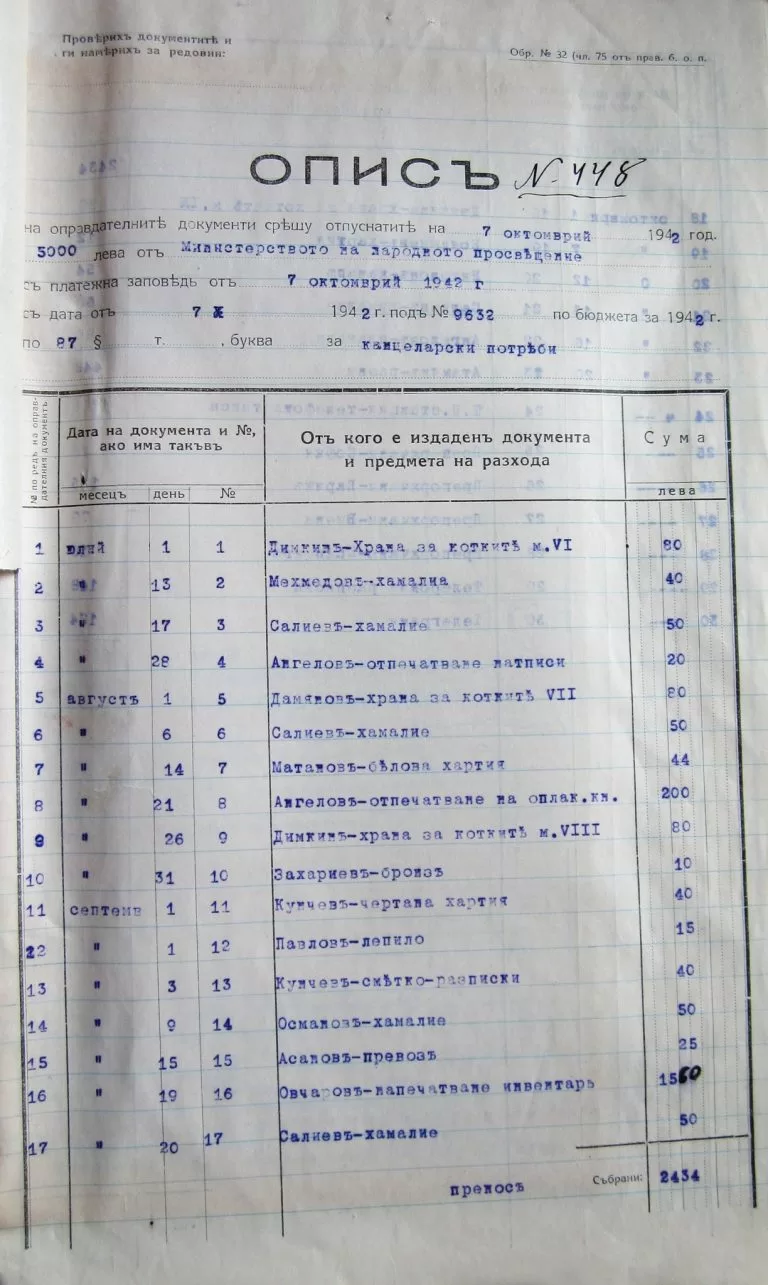 Провѣрихъ документитѣ и
ги намѣрихъ за редовни:
Обр. № 32 (чл. 75 отъ прав. б. о. п.
ОПИСЪ № 448
на оправдателнитѣ документи срѣшу отпуснатитѣ на 7 октомврий 1942 год.
5000 лева отъ Министерството на народното просвѣщение
съ платежна заповѣдь отъ 7 октомврий 1942 г
съ дата отъ 7 X 1942 г. подъ № 9632 по бюджета за 1942 г.
по 87 § т. , буква за канцеларски потрѣби
№ по редъ на оправдателния документъ
Дата на документа и №, ако има такъвъ
месецъ день №
Отъ кого е издаденъ документа и предмета на разхода
Сума
лева
1 юлий 1 1 Димкинъ-Храна за коткитѣ м.VI 80
2 " 13 2 Мехмедовъ-хамалиа 40
3 " 17 3 Салиевъ-хамалие 50
4 " 28 4 Ангеловъ-отпечатване натписи 20
5 августъ 1 5 Дамяновъ-храна за коткитѣ VII 80
6 " 6 6 Салиевъ-хамалие 50
7 " 14 7 Матановъ-бѣлова хартия 44
8 " 21 8 Ангеловъ-отпечатване на оплак.кн. 200
9 " 26 9 Димкинъ-храна за коткитѣ м.VIII 80
10 " 31 10 Захариевъ-бронзъ 10
11 септемв 1 11 Кунчевъ-чертана хартия 40
22 " 1 12 Павловъ-лепило 15
13 " 3 13 Кунчевъ-смѣтко-разписки 40
14 " 9 14 Османовъ-хамалие 50
15 " 15 15 Асановъ-превозъ 25
16 " 19 16 Овчаровъ-напечатване инвентарь 1560
17 " 20 17 Салиевъ-хамалие 50
преносъ Събрани: 2434